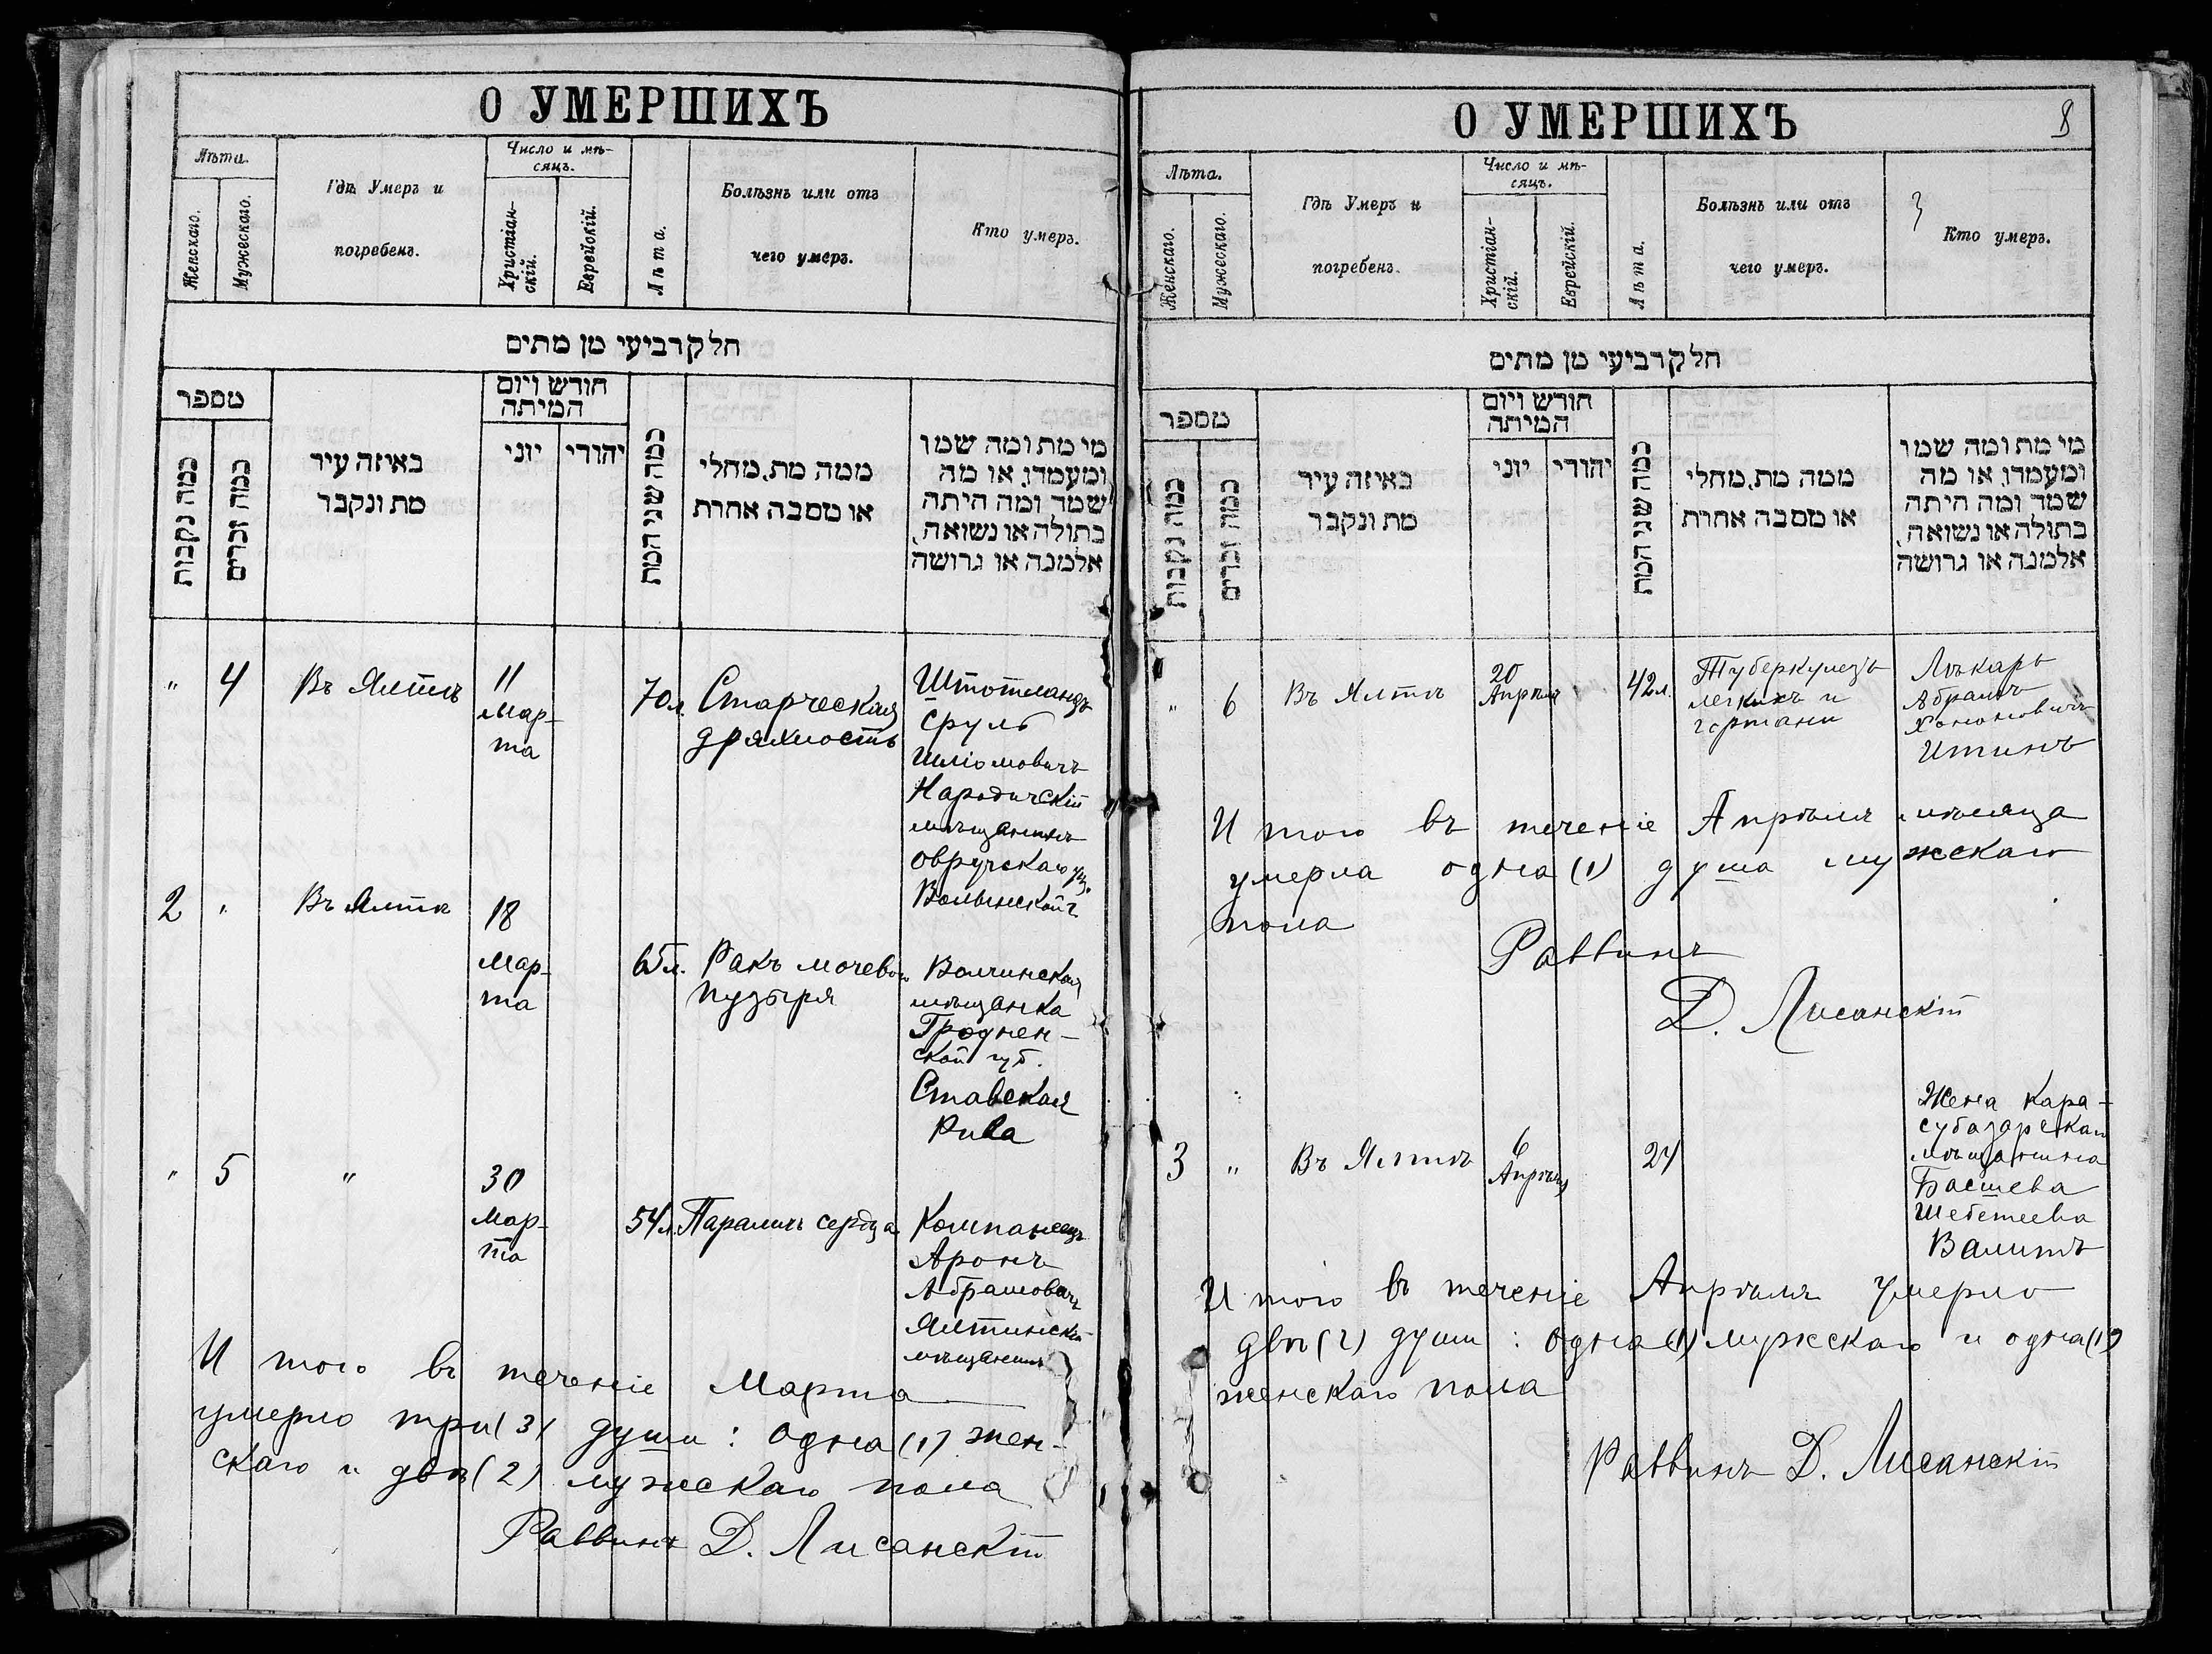 О УМЕРШИХЪ
Лѣта.
Женскаго.
Мужескаго.
Гдѣ Умеръ и
погребенъ.
Число и мѣ-
сяцъ.
Христіан-
скій.
Еврейскій.
Лѣта.
Болѣзнь или отъ
чего умеръ.
Кто умеръ.
חלק רביעי מן מתים
מספר
כמה נקבות
כמה זכרים
באיזה עיר
מת ונקבר
חודש ויום
המיתה
יוני
יהודי
כמה שני המת
ממה מת, מחלי
או מסבה אחרת
מי מת ומה שמו
ומעמדו, או מה
שמה ומה היתה
בתולה או נשואה,
אלמנה או גרושה
" 4 Въ Ялтѣ 11
Мар-
та
70 л. Старческая
дряхлость
Штотландъ
Сруль
Шліомовичъ
Народичскій
мѣщанинъ
Овручскаго уѣз.
Волынской г.
2 " Въ Ялтѣ 18
Мар-
та
65 л. Ракъ мочевого
пузыря
Волчинская
мѣщанка
Гроднен-
ской губ.
Ставская
Рива
" 5 " 30
Мар-
та
54 л. Параличъ сердца
Компанеецъ
Аронъ
Абрамовичъ
Ялтинскій
мѣщанинъ
И того въ теченіе Марта
умерло три (3) души: одна (1) жен-
скаго и двѣ (2) мужскаго пола
Раввинъ Д. Лисанскій
О УМЕРШИХЪ
8
Лѣта.
Женскаго.
Мужескаго.
Гдѣ Умеръ и
погребенъ.
Число и мѣ-
сяцъ.
Христіан-
скій.
Еврейскій.
Лѣта.
Болѣзнь или отъ
чего умеръ.
Кто умеръ.
חלק רביעי מן מתים
מספר
כמה נקבות
כמה זכרים
באיזה עיר
מת ונקבר
חודש ויום
המיתה
יוני
יהודי
כמה שני המת
ממה מת, מחלי
או מסבה אחרת
מי מת ומה שמו
ומעמדו, או מה
שמה ומה היתה
בתולה או נשואה,
אלמנה או גרושה
" 6 Въ Ялтѣ 20
Апрѣля
42 л. Туберкулезъ
легкихъ и
гортани
Лѣкарь
Абрамъ
Хононовичъ
Итинъ
И того въ теченіе Апрѣля мѣсяца
умерла одна (1) душа мужскаго
пола
Раввинъ
Д. Лисанскій
3 " Въ Ялтѣ 6
Апрѣля
24
Жена Кара-
субазарскаго
мѣщанина
Басшева
Шебетеева
Валитъ
И того въ теченіе Апрѣля умерло
двѣ (2) души: одна (1) мужскаго и одна (1)
женскаго пола
Раввинъ Д. Лисанскій